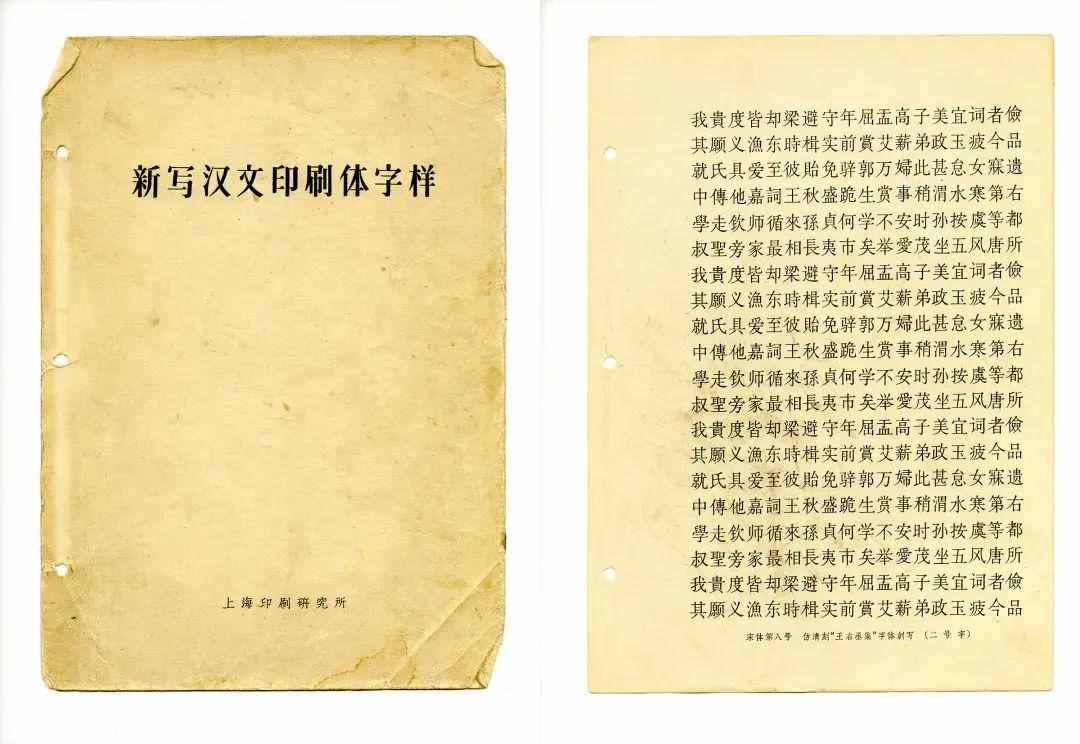 新写汉文印刷体字样
上海印刷研究所
我貴度皆却梁避守年屈盂高子美宜词者儉
其願义漁东時楫实前賞艾薪弟政玉疲今品
就氏具爱至彼貽免骍郭万婦此甚怠女寐遺
中傅他嘉詞王秋盛跪生赏事稍渭水寒第右
學走钦师循來孫貞何学不安时孙按虞等都
叔聖旁家最相長夷市矣举愛茂坐五风唐所
我貴度皆却梁避守年屈盂高子美宜词者儉
其願义漁东時楫实前賞艾薪弟政玉疲今品
就氏具爱至彼貽免骍郭万婦此甚怠女寐遺
中傅他嘉詞王秋盛跪生赏事稍渭水寒第右
學走钦师循來孫貞何学不安时孙按虞等都
叔聖旁家最相長夷市矣举愛茂坐五风唐所
我貴度皆却梁避守年屈盂高子美宜词者儉
其願义漁东時楫实前賞艾薪弟政玉疲今品
就氏具爱至彼貽免骍郭万婦此甚怠女寐遺
中傅他嘉詞王秋盛跪生赏事稍渭水寒第右
學走钦师循來孫貞何学不安时孙按虞等都
叔聖旁家最相長夷市矣举愛茂坐五风唐所
我貴度皆却梁避守年屈盂高子美宜词者儉
其願义漁东時楫实前賞艾薪弟政玉疲今品
宋体第八号 仿清刻“王右丞集”字体創写 (二号字)